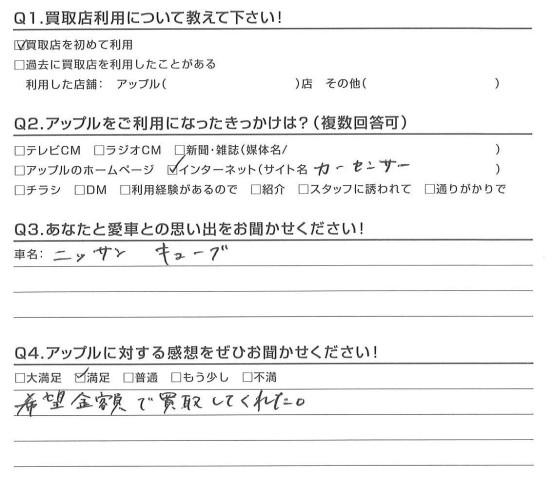 Q1.買取店利用について教えて下さい!
☑買取店を初めて利用
□過去に買取店を利用したことがある
利用した店舗: アップル( )店 その他( )
Q2.アップルをご利用になったきっかけは?(複数回答可)
□テレビCM □ラジオCM □新聞・雑誌(媒体名/ )
□アップルのホームページ ☑インターネット(サイト名 カーセンサー )
□チラシ □DM □利用経験があるので □紹介 □スタッフに誘われて □通りがかりで
Q3.あなたと愛車との思い出をお聞かせください!
車名: ニッサン キューブ
Q4.アップルに対する感想をぜひお聞かせください!
□大満足 ☑満足 □普通 □もう少し □不満
希望金額で買取してくれた。